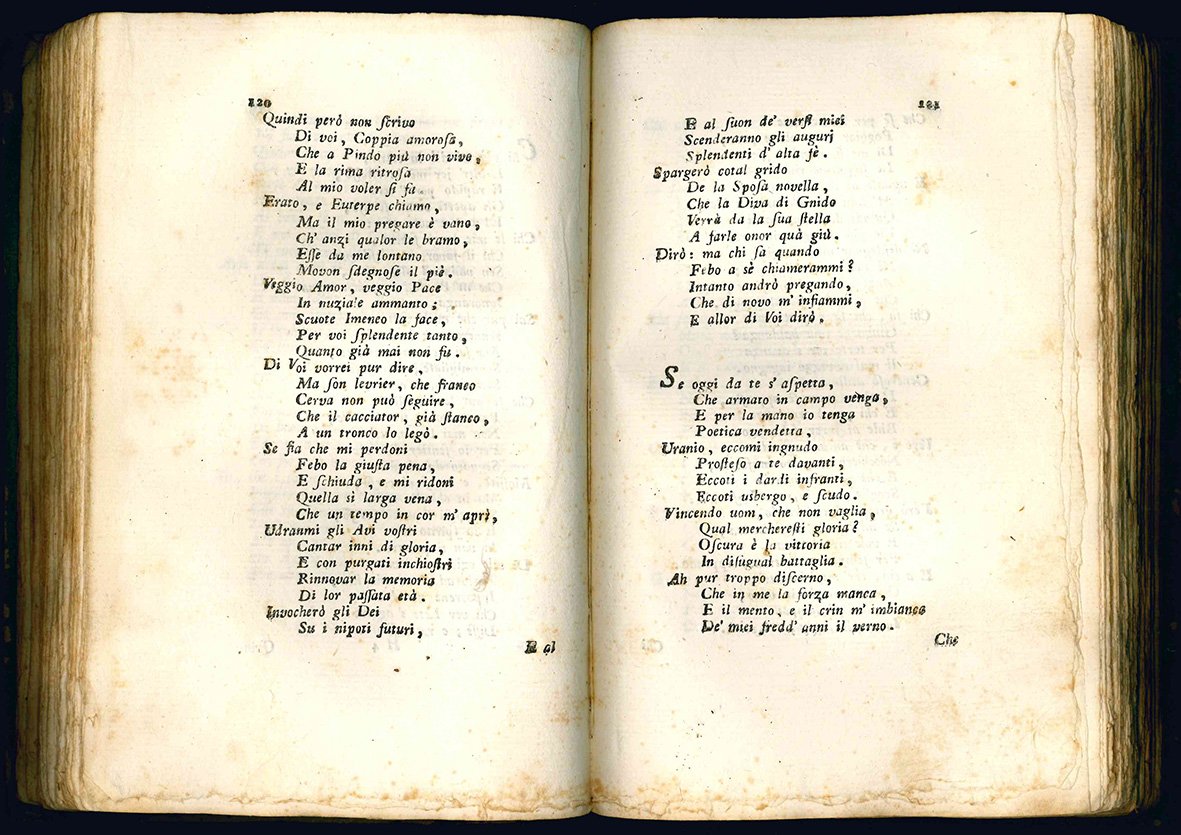 120
Quindi però non ſcrivo
Di voi, Coppia amoroſa,
Che a Pindo più non vivo,
E la rima ritroſa
Al mio voler ſi fa.
Erato, e Euterpe chiamo,
Ma il mio pregare è vano,
Ch' anzi qualor le bramo,
Eſſe da me lontano
Movon ſdegnoſe il piè.
Veggio Amor, veggio Pace
In nuziale ammanto;
Scuote Imeneo la face,
Per voi ſplendente tanto,
Quanto già mai non fu.
Di Voi vorrei pur dire,
Ma ſon levrier, che franco
Cerva non può ſeguire,
Che il cacciator, già ſtanco,
A un tronco lo legò.
Se fia che mi perdoni
Febo la giuſta pena,
E ſchiuda, e mi ridoni
Quella sì larga vena,
Che un tempo in cor m' aprì,
Udranmi gli Avi voſtri
Cantar inni di gloria,
E con purgati inchioſtri
Rinnovar la memoria
Di lor paſſata età.
Invocherò gli Dei
Su i nipoti futuri,
E al
121
E al ſuon de' verſi miei
Scenderanno gli augurj
Splendenti d' alta fè.
Spargerò cotal grido
De la Spoſa novella,
Che la Diva di Gnido
Verrà da la ſua ſtella
A farle onor quà giù.
Dirò: ma chi ſa quando
Febo a sè chiamerammi?
Intanto andrò pregando,
Che di novo m' infiammi,
E allor di Voi dirò.
Se oggi da te s' aſpetta,
Che armato in campo venga,
E per la mano io tenga
Poetica vendetta,
Uranio, eccomi ingnudo
Proſteſo a te davanti,
Eccoti i dardi infranti,
Eccoti usbergo, e ſcudo.
Vincendo uom, che non vaglia,
Qual mercherеſti gloria?
Oſcura è la vittoria
In diſugual battaglia.
Ah pur troppo diſcerno,
Che in me la forza manca,
E il mento, e il crin m' imbianca
De' miei fredd' anni il verno.
Che